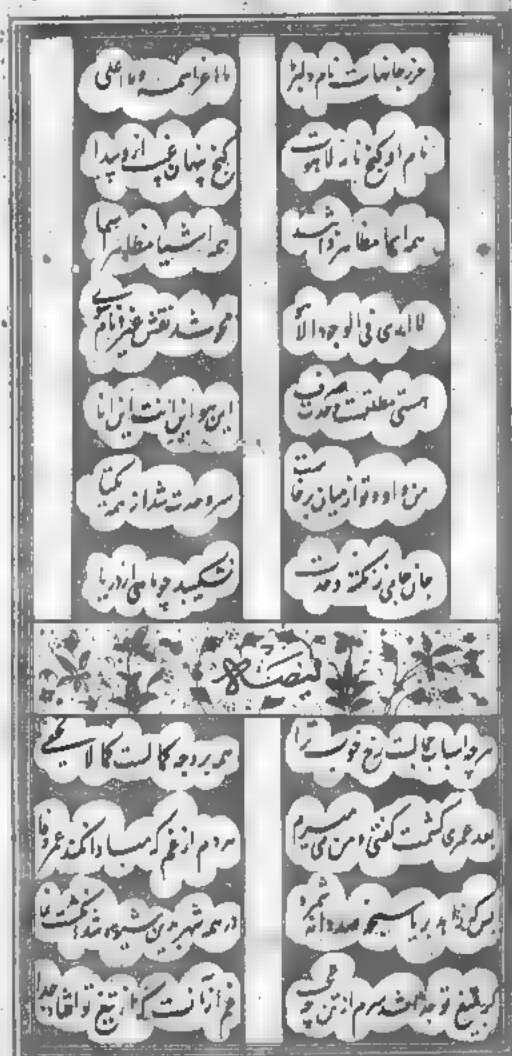 حرز جانهاست نام دلبر ما اعز اسمه و ما اعلی
نام او گنج نامه لاهوت گنج پنهان غیب ازو پیدا
همه اسما مظاهر ذاتند همه اشیا مظاهر اسما
لا اری فی الوجود الا هو محو شد نقش غیر و نام سوی
هستی مطلقست وحدت صرف این هو این انت این انا
من و او و تو از میان برخاست سر وحدت شد از همه یکتا
جان جامی ز نکته وحدت نشکیبد چو ماهی از دریا
ایضا له
هرچه اسباب جمالست رخ خوب ترا همه بر وجه کمالست کما لا یخفی
بعد عمری کشمت گفتی و من می میرم هر دم از غم که مبادا نکند عمر وفا
بس که زاهد بریا سبحه صد دانه شمرد در همه شهر بدین شیوه شد انگشت نما
گر بتیغ تو جدا شد سرم از تن چه غمی غم از آنست که از تیغ تو افتاد جدا